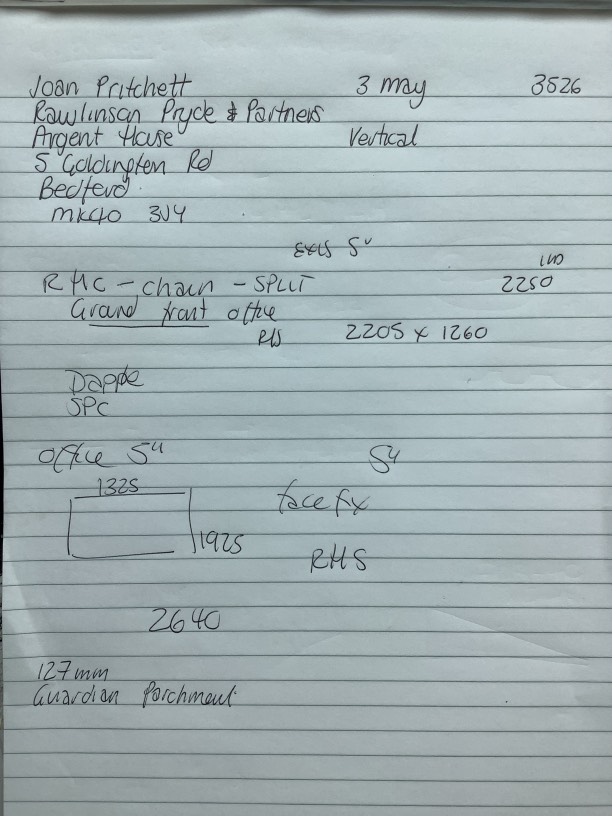 Joan Pritchett 3 May 3526
Rawlinson Pryde & Partners
Argent House Vertical
5 Goldington Rd
Bedford
MK40 3JY
EXIS 5"
RHC - chain - SPLIT 2250
Ground front office
RHS 2205 x 1260
Dapple
SPC
Office 5" 5"
1325
face fix
1925
RHS
2640
127mm
Guardian Parchment